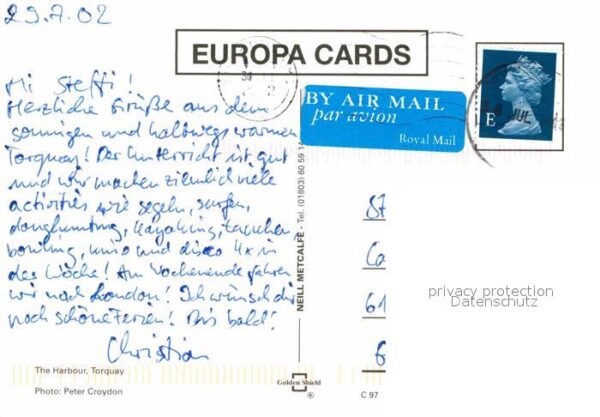 29.7.02
EUROPA CARDS
Hi Steffi!
Herzliche Grüße aus dem
sonnigen und halbwegs warmen
Torquay! Der Unterricht ist gut
und wir machen ziemlich viele
activities wie segeln, surfen,
kayaking, tauchen,
bowling, und disco 4x in
der Woche! Am Wochenende fahren
wir nach London! Ich wünsch dir
noch schöne Ferien! Bis bald!
Christian
BY AIR MAIL
par avion
Royal Mail
E
JUL
NEILL METCALFE - Tel. (01803) 60 59 14
St
Co
61
6
privacy protection
Datenschutz
The Harbour, Torquay
Photo: Peter Croydon
Golden Shield
®
C 97